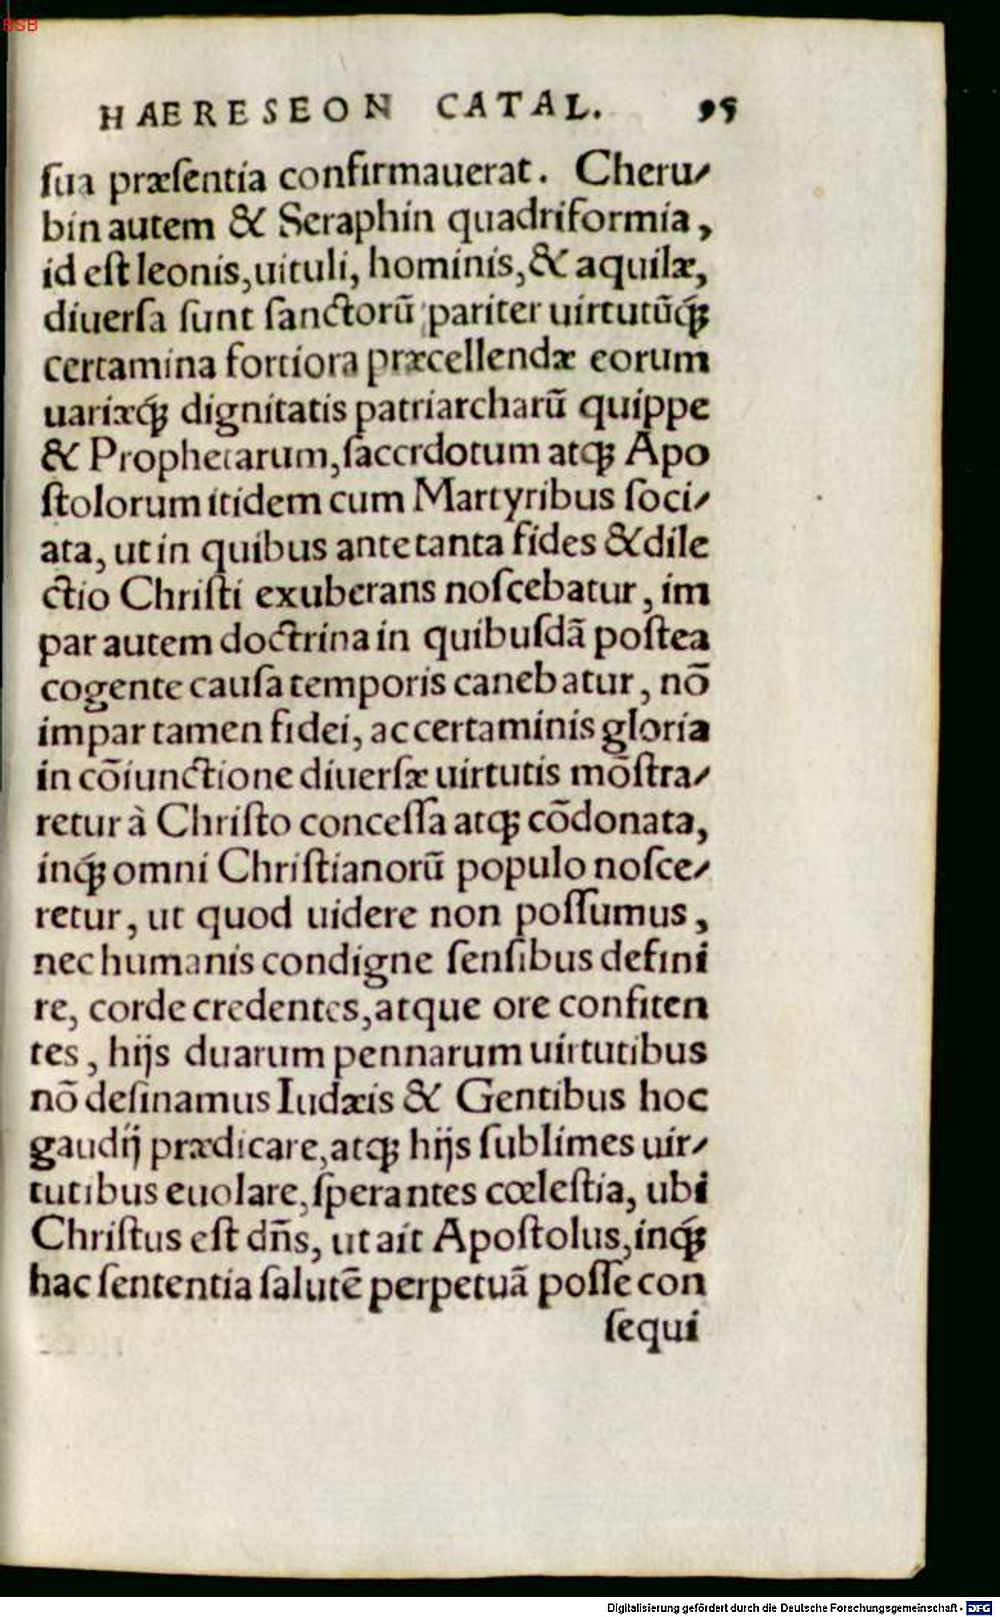 BSB
HAERESEON CATAL. 95
ſua præſentia confirmauerat. Cheru⸗
bin autem & Seraphin quadriformia,
id eſt leonis, uituli, hominis, & aquilæ,
diuerſa ſunt ſanctorū pariter uirtutūq́ꝫ
certamina fortiora præcellendæ eorum
uariæq́ꝫ dignitatis patriarcharū quippe
& Prophetarum, ſacerdotum atqꝫ Apo
ſtolorum itidem cum Martyribus ſoci⸗
ata, ut in quibus ante tanta fides & dile
ctio Chriſti exuberans noſcebatur, im
par autem doctrina in quibuſdā poſtea
cogente cauſa temporis canebatur, nō
impar tamen fidei, ac certaminis gloria
in cōiunctione diuerſæ uirtutis mōſtra⸗
retur à Chriſto conceſſa atqꝫ cōdonata,
inq́ꝫ omni Chriſtianorū populo noſce⸗
retur, ut quod uidere non poſſumus,
nec humanis condigne ſenſibus defini
re, corde credentes, atque ore confiten
tes, hijs duarum pennarum uirtutibus
nō deſinamus Iudæis & Gentibus hoc
gaudij prædicare, atqꝫ hijs ſublimes uir⸗
tutibus euolare, ſperantes cœleſtia, ubi
Chriſtus eſt dn̄s, ut ait Apoſtolus, inq́ꝫ
hac ſententia ſalutē perpetuā poſſe con
ſequi
Digitalisierung gefördert durch die Deutsche Forschungsgemeinschaft - DFG